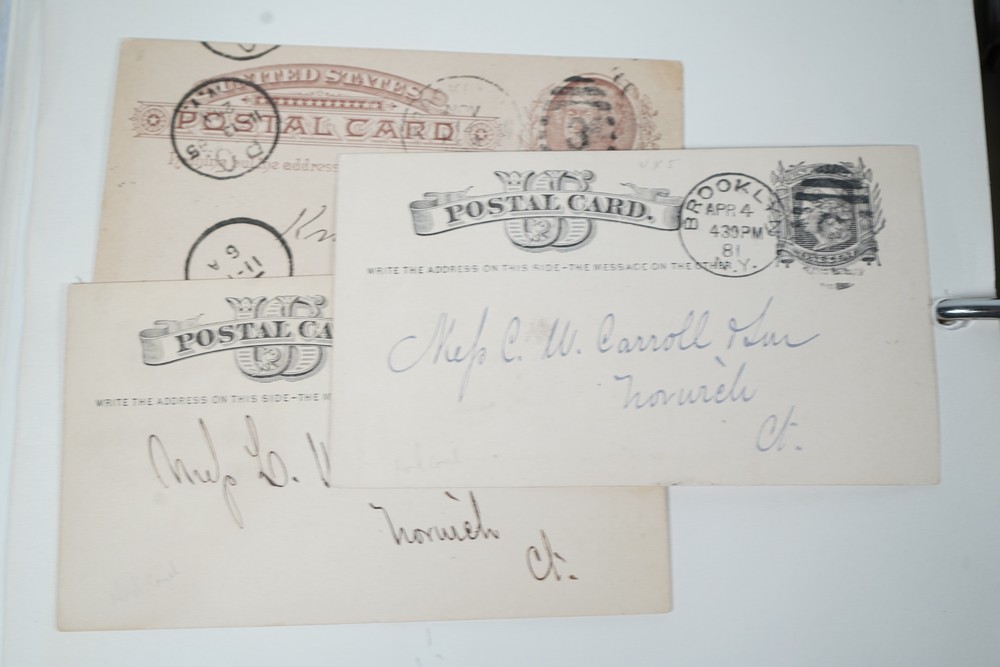 UNITED STATES
POSTAL CARD
address
11
POSTAL CARD.
BROOKLYN
APR 4
430PM
81
N.Y.
WRITE THE ADDRESS ON THIS SIDE-THE MESSAGE ON THE OTHER.
Mess C. W. Carroll & Son
Norwich
Ct.
POSTAL CA
WRITE THE ADDRESS ON THIS SIDE-THE M
Mess
Norwich
Ct.